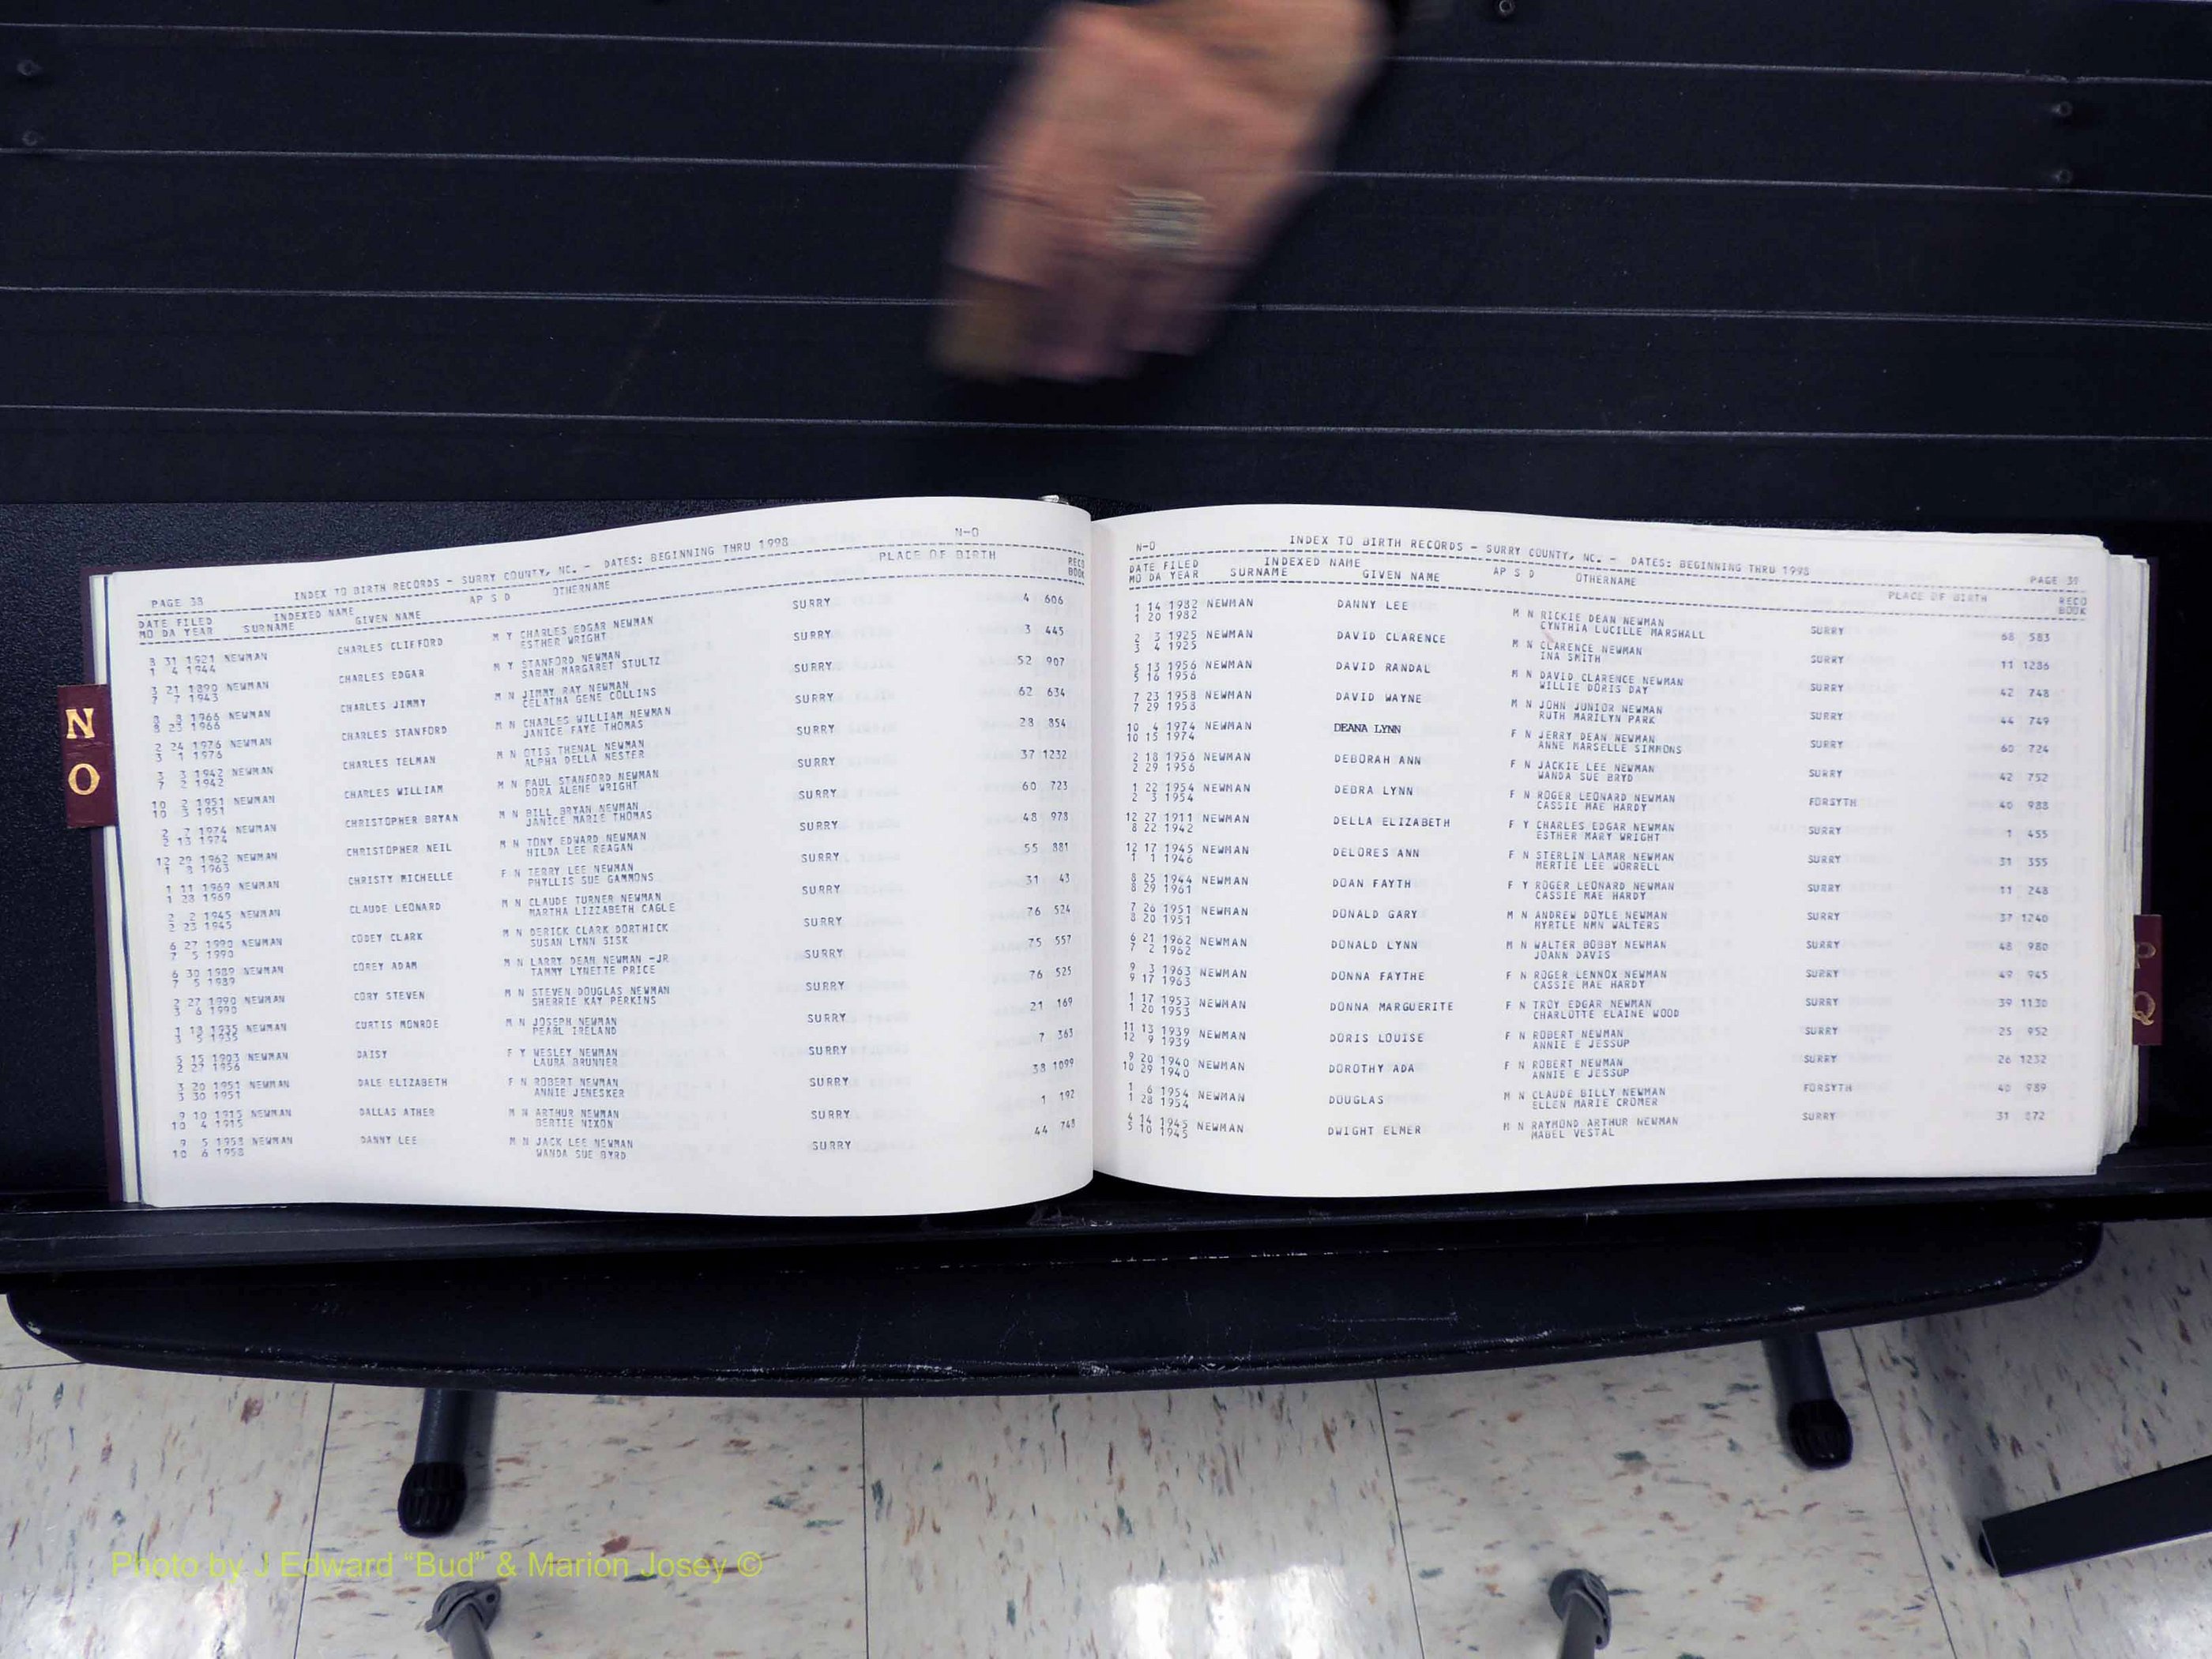 N
O
PAGE 38 INDEX TO BIRTH RECORDS - SURRY COUNTY, NC. - DATES: BEGINNING THRU 1998 N-O
DATE FILED INDEXED NAME AP S D OTHERNAME PLACE OF BIRTH RECO
MO DA YEAR SURNAME GIVEN NAME BOOK
8 31 1921 NEWMAN CHARLES CLIFFORD M Y CHARLES EDGAR NEWMAN SURRY 4 606
1 4 1944 ESTHER WRIGHT
3 21 1890 NEWMAN CHARLES EDGAR M Y STANFORD NEWMAN SURRY 3 445
7 7 1943 SARAH MARGARET STULTZ
8 8 1966 NEWMAN CHARLES JIMMY M N JIMMY RAY NEWMAN SURRY 52 907
8 23 1966 CELATHA GENE COLLINS
2 24 1976 NEWMAN CHARLES STANFORD M N CHARLES WILLIAM NEWMAN SURRY 62 634
3 1 1976 JANICE FAYE THOMAS
3 3 1942 NEWMAN CHARLES TELMAN M N OTIS THENAL NEWMAN SURRY 28 854
7 2 1942 ALPHA DELLA NESTER
10 2 1951 NEWMAN CHARLES WILLIAM M N PAUL STANFORD NEWMAN SURRY 37 1232
10 3 1951 DORA ALENE WRIGHT
2 7 1974 NEWMAN CHRISTOPHER BRYAN M N BILL BRYAN NEWMAN SURRY 60 723
2 13 1974 JANICE MARIE THOMAS
12 29 1962 NEWMAN CHRISTOPHER NEIL M N TONY EDWARD NEWMAN SURRY 48 978
1 8 1963 HILDA LEE REAGAN
1 11 1969 NEWMAN CHRISTY MICHELLE F N TERRY LEE NEWMAN SURRY 55 881
1 28 1969 PHYLLIS SUE GAMMONS
2 2 1945 NEWMAN CLAUDE LEONARD M N CLAUDE TURNER NEWMAN SURRY 31 43
2 23 1945 MARTHA LIZZABETH CAGLE
6 27 1990 NEWMAN CODEY CLARK M N DERICK CLARK DORTHICK SURRY 76 524
7 5 1990 SUSAN LYNN SISK
6 30 1989 NEWMAN COREY ADAM M N LARRY DEAN NEWMAN -JR SURRY 75 557
7 5 1989 TAMMY LYNETTE PRICE
2 27 1990 NEWMAN CORY STEVEN M N STEVEN DOUGLAS NEWMAN SURRY 76 525
3 6 1990 SHERRIE KAY PERKINS
1 18 1935 NEWMAN CURTIS MONROE M N JOSEPH NEWMAN SURRY 21 169
3 5 1935 PEARL IRELAND
5 15 1903 NEWMAN DAISY F Y WESLEY NEWMAN SURRY 7 363
2 27 1956 LAURA BRUNNER
3 20 1951 NEWMAN DALE ELIZABETH F N ROBERT NEWMAN SURRY 38 1099
3 30 1951 ANNIE JENESKER
9 10 1915 NEWMAN DALLAS ATHER M N ARTHUR NEWMAN SURRY 1 192
10 4 1915 BERTIE NIXON
9 5 1958 NEWMAN DANNY LEE M N JACK LEE NEWMAN SURRY 44 748
10 6 1958 WANDA SUE BYRD
N-O INDEX TO BIRTH RECORDS - SURRY COUNTY, NC. - DATES: BEGINNING THRU 1998 PAGE 39
DATE FILED INDEXED NAME AP S D OTHERNAME PLACE OF BIRTH RECO
MO DA YEAR SURNAME GIVEN NAME BOOK
1 14 1982 NEWMAN DANNY LEE M N RICKIE DEAN NEWMAN SURRY 68 583
1 20 1982 CYNTHIA LUCILLE MARSHALL
2 3 1925 NEWMAN DAVID CLARENCE M N CLARENCE NEWMAN SURRY 11 1286
3 4 1925 INA SMITH
5 13 1956 NEWMAN DAVID RANDAL M N DAVID CLARENCE NEWMAN SURRY 42 748
5 16 1956 WILLIE DORIS DAY
7 23 1958 NEWMAN DAVID WAYNE M N JOHN JUNIOR NEWMAN SURRY 44 749
7 29 1958 RUTH MARILYN PARK
10 4 1974 NEWMAN DEANA LYNN F N JERRY DEAN NEWMAN SURRY 60 724
10 15 1974 ANNE MARSELLE SIMMONS
2 18 1956 NEWMAN DEBORAH ANN F N JACKIE LEE NEWMAN SURRY 42 752
2 29 1956 WANDA SUE BRYD
1 22 1954 NEWMAN DEBRA LYNN F N ROGER LEONARD NEWMAN FORSYTH 40 988
2 3 1954 CASSIE MAE HARDY
12 27 1911 NEWMAN DELLA ELIZABETH F Y CHARLES EDGAR NEWMAN SURRY 1 455
8 22 1942 ESTHER MARY WRIGHT
12 17 1945 NEWMAN DELORES ANN F N STERLIN LAMAR NEWMAN SURRY 31 355
1 1 1946 MERTIE LEE WORRELL
8 25 1944 NEWMAN DOAN FAYTH F Y ROGER LEONARD NEWMAN SURRY 11 248
8 29 1961 CASSIE MAE HARDY
7 26 1951 NEWMAN DONALD GARY M N ANDREW DOYLE NEWMAN SURRY 37 1240
8 20 1951 MYRTLE NMN WALTERS
6 21 1962 NEWMAN DONALD LYNN M N WALTER BOBBY NEWMAN SURRY 48 980
7 2 1962 JOANN DAVIS
9 3 1963 NEWMAN DONNA FAYTHE F N ROGER LENNOX NEWMAN SURRY 49 945
9 17 1963 CASSIE MAE HARDY
1 17 1953 NEWMAN DONNA MARGUERITE F N TROY EDGAR NEWMAN SURRY 39 1130
1 20 1953 CHARLOTTE ELAINE WOOD
11 13 1939 NEWMAN DORIS LOUISE F N ROBERT NEWMAN SURRY 25 952
12 9 1939 ANNIE E JESSUP
9 20 1940 NEWMAN DOROTHY ADA F N ROBERT NEWMAN SURRY 26 1232
10 29 1940 ANNIE E JESSUP
1 6 1954 NEWMAN DOUGLAS M N CLAUDE BILLY NEWMAN FORSYTH 40 989
1 28 1954 ELLEN MARIE CROMER
4 14 1945 NEWMAN DWIGHT ELMER M N RAYMOND ARTHUR NEWMAN SURRY 31 872
5 10 1945 MABEL VESTAL
Q
Photo by J Edward “Bud” & Marion Josey ©